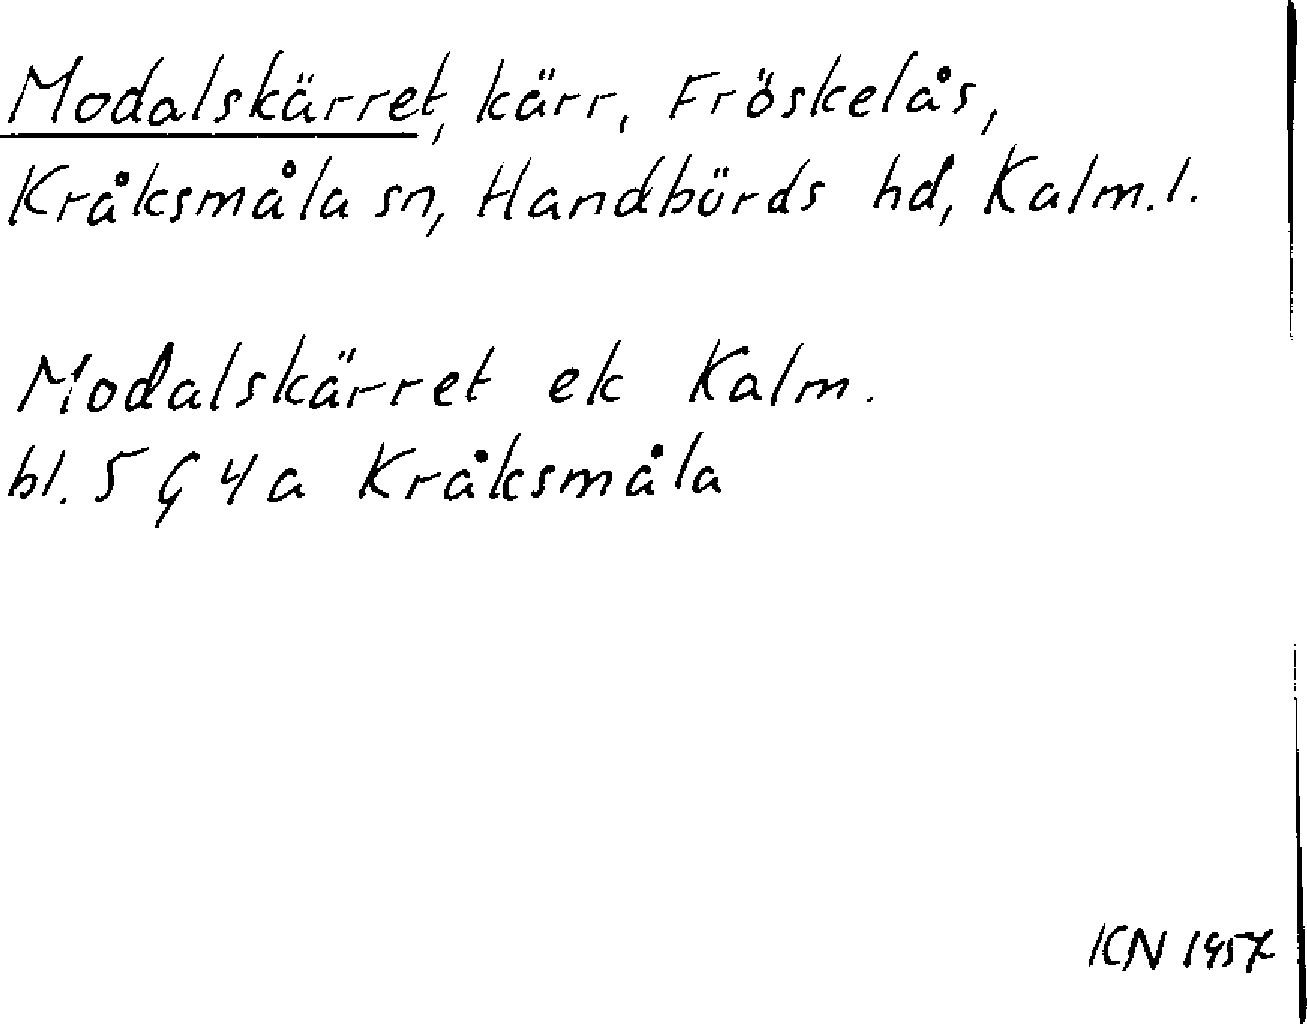 Modalskärret, kärr, Fröskelås,
Kråksmåla sn, Handbörds hd, Kalm.l.
Modalskärret ek Kalm.
bl. 5 G 4 a Kråksmåla
KN 1957